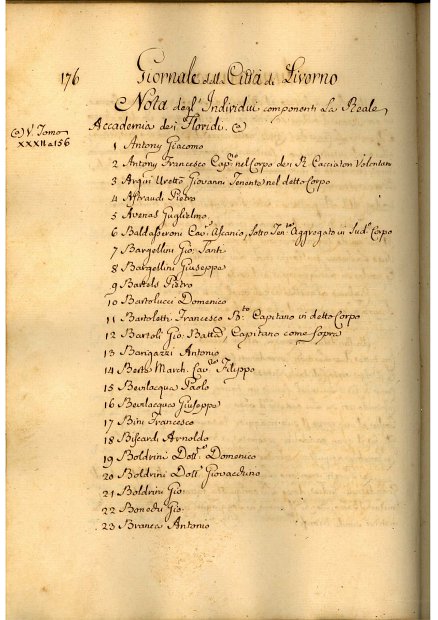 176
Giornale della Città di Livorno
Nota degl' Individui componenti La Reale
Accademia dei Floridi. (a)
(a) V. Tomo
XXXII a 156
1 Antony Giacomo
2 Antony Francesco Cap.no nel Corpo dei R. Cacciatori Volontari
3 Arqui Uretta Giovanni Tenente nel detto Corpo
4 Astraudi Pietro
5 Avenas Guglielmo
6 Baldasseroni Cav. Ascanio, Sotto Ten.te Aggregato in Sud.o Corpo
7 Bargellini Gio: Santi
8 Bargellini Giuseppe
9 Bartels Pietro
10 Bartolucci Domenico
11 Bartoletti Francesco B.to Capitano in detto Corpo
12 Bartoli Gio: Batta, Capitano come sopra
13 Barigazzi Antonio
14 Berte March. Cav. Filippo
15 Bevilacqua Paolo
16 Bevilacqua Giuseppe
17 Bini Francesco
18 Biscardi Arnoldo
19 Boldrini Dott. Domenico
20 Boldrini Dott. Giovacchino
21 Boldrini Gio:
22 Gio:
23 Branca Antonio